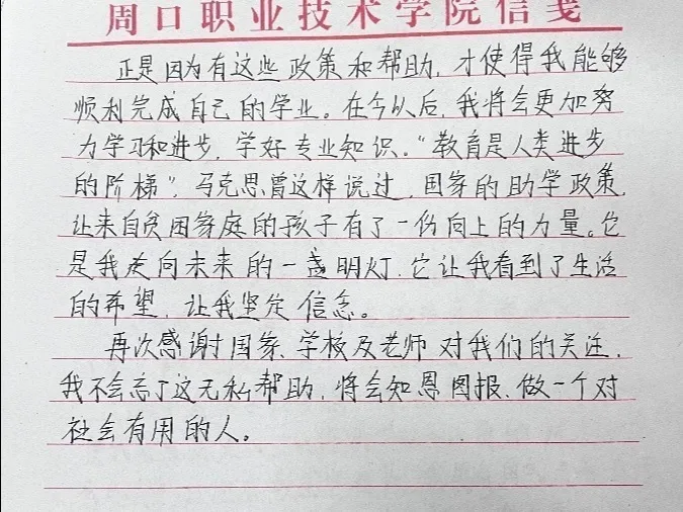 周口职业技术学院信笺
正是因为有这些政策和帮助，才使得我能够
顺利完成自己的学业。在今以后，我将会更加努
力学习和进步，学好专业知识。“教育是人类进步
的阶梯”，马克思曾这样说过，国家的助学政策，
让来自贫困家庭的孩子有了一份向上的力量。它
是我走向未来的一盏明灯，它让我看到了生活
的希望，让我坚定信念。
再次感谢国家、学校及老师对我们的关注，
我不会忘了这无私帮助，将会知恩图报，做一个对
社会有用的人。